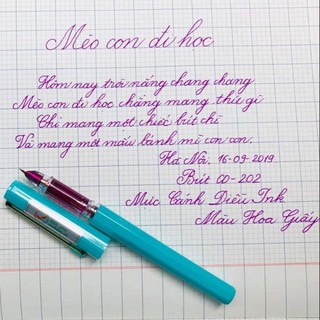 Mèo con đi học
Hôm nay trời nắng chang chang
Mèo con đi học chẳng mang thứ gì
Chỉ mang một chiếc bút chì
Và mang một mẩu bánh mì con con.
Hà Nội, 16-09-2019
Bút CD-202
Mực Cánh Diều Ink
Màu Hoa Giấy